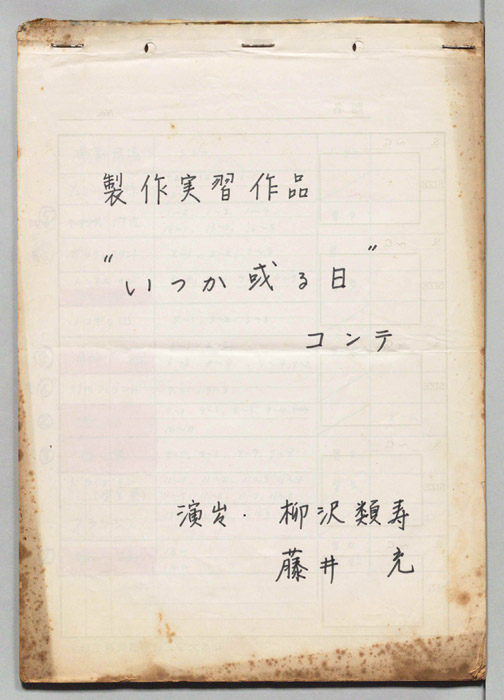 製作実習作品
“いつか或る日”
コンテ
演出・柳沢類寿
藤井 充